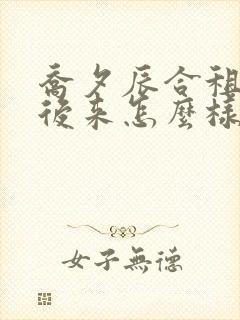 喬夕辰合租
後來怎麼樣
女子無德